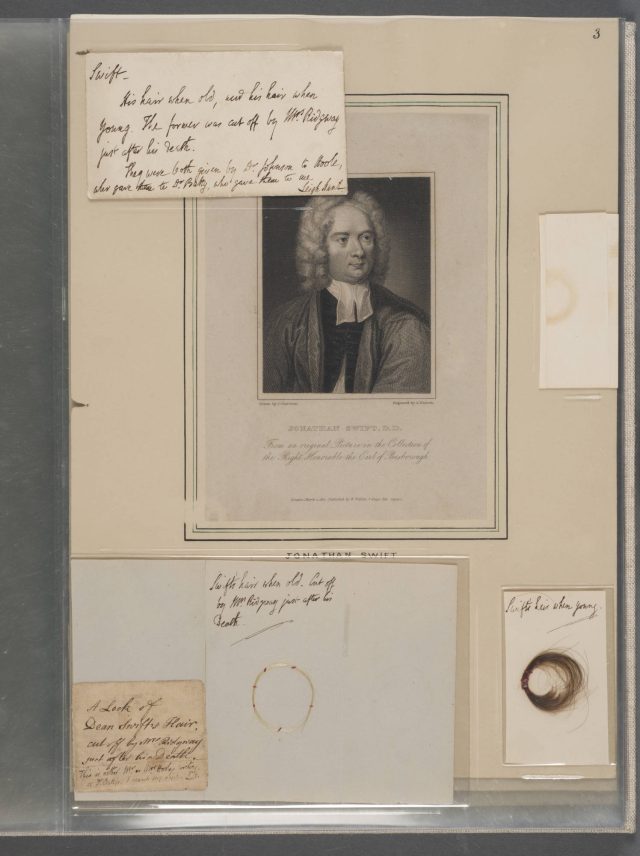 3
Swift -
His hair when old, and his hair when
Young. The former was cut off by Mrs. Ridgway
just after his death.
They were both given by Dr. Johnson to Hoole,
who gave them to Dr. Batty, who gave them to me
Leigh Hunt
JONATHAN SWIFT, D.D.
From an original Picture in the Collection of
the Right Honorable the Earl of Besborough
JONATHAN SWIFT
Swifts hair when old. Cut off
by Mrs. Ridgway just after his
Death.
Swifts hair when young.
A Lock of
Dean Swifts Hair,
cut off by Mrs Ridgway
just after his Death.
This is